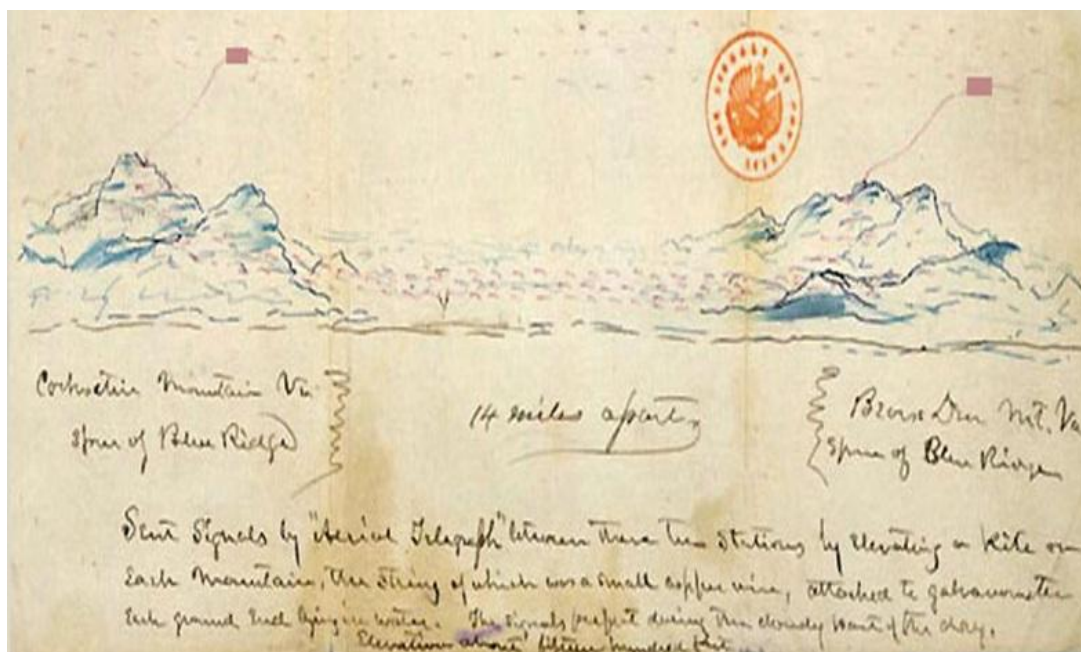 THE LIBRARY OF CONGRESS
Mountain Va
Spur of Blue Ridge
14 miles apart
Mt. Va
Spur of Blue Ridge
Sent Signals by "Aerial Telegraph" between these two Stations by elevating a Kite on
each Mountain, the string of which was a small copper wire, attached to galvanometer
each ground end lying in water. The signals perfect during the cloudy part of the day.
Elevations about fifteen hundred feet